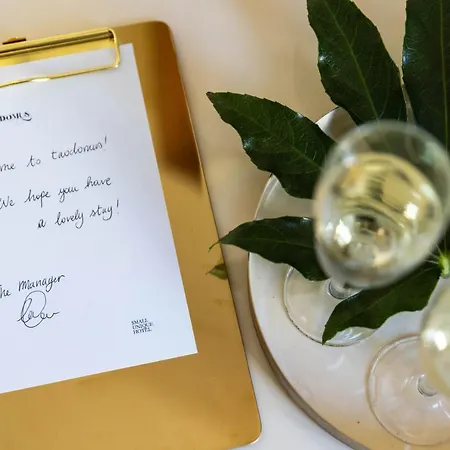 me to taodomus!
We hope you have
a lovely stay!
The Manager
SMALL
UNIQUE
HOTEL